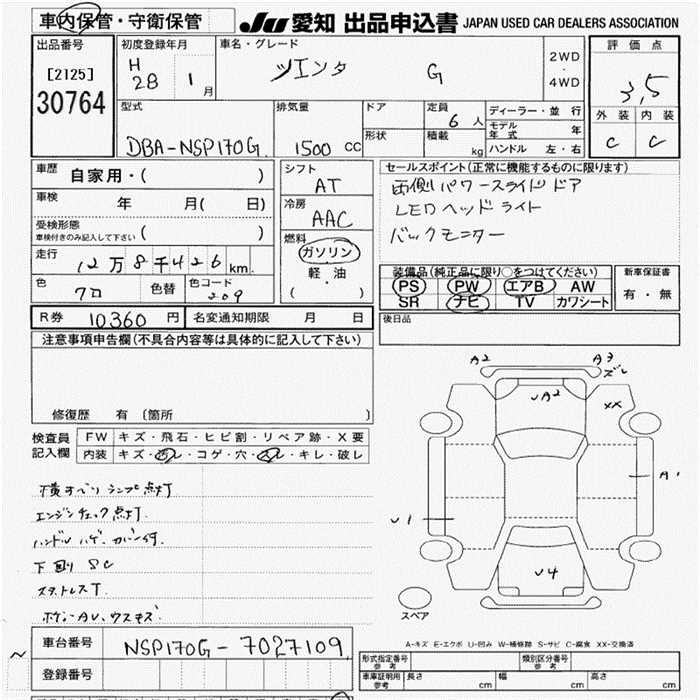 車内保管・守衛保管
JU 愛知 出品申込書 JAPAN USED CAR DEALERS ASSOCIATION
出品番号
[2125]
30764
初度登録年月
H
28 1 月
車名・グレード
シエンタ G
2WD
・
4WD
評価点
3.5
外装 内装
C C
型式
DBA-NSP170G
排気量
1500 CC
ドア
形状
定員
6 人
積載
kg
ディーラー・並行
モデル年式 年
ハンドル 左・右
車歴
自家用・( )
車検
年 月( 日)
受検形態
車検付きのみ記入して下さい ( )
走行
12万8千426 km
色
クロ
色替
色コード
209
シフト
AT
冷房
AAC
燃料
ガソリン
軽・油
( )
セールスポイント(正常に機能するものに限ります)
両側パワースライドドア
LEDヘッドライト
バックモニター
装備品(純正品に限り○をつけてください)
PS PW エアB AW
SR ナビ TV カワシート
新車保証書
有・無
R券 10360 円
名変通知期限 月 日
後日品
注意事項申告欄(不具合内容等は具体的に記入して下さい)
修復歴 有 〔箇所 〕
検査員
記入欄
FW キズ・飛石・ヒビ割・リペア跡・X要
内装 キズ・汚レ・コゲ・穴・スレ・キレ・破レ
横すべりランプ点灯
エンジンチェック点灯.
ハンドルハゲ.カバー付.
下廻りSC
スタットレスT
ボデーAU、ウスキズ
A2
A3
ズレ
A2
XX
A1
U1
U4
スペア
A-キズ E-エクボ U-凹み W-補修跡 S-サビ C-腐食 XX-交換済
車台番号
NSP170G-7027109
登録番号
形式指定番号
参考
類別区分番号
参考
車庫証明用
参考
長さ cm 幅 cm 高さ cm